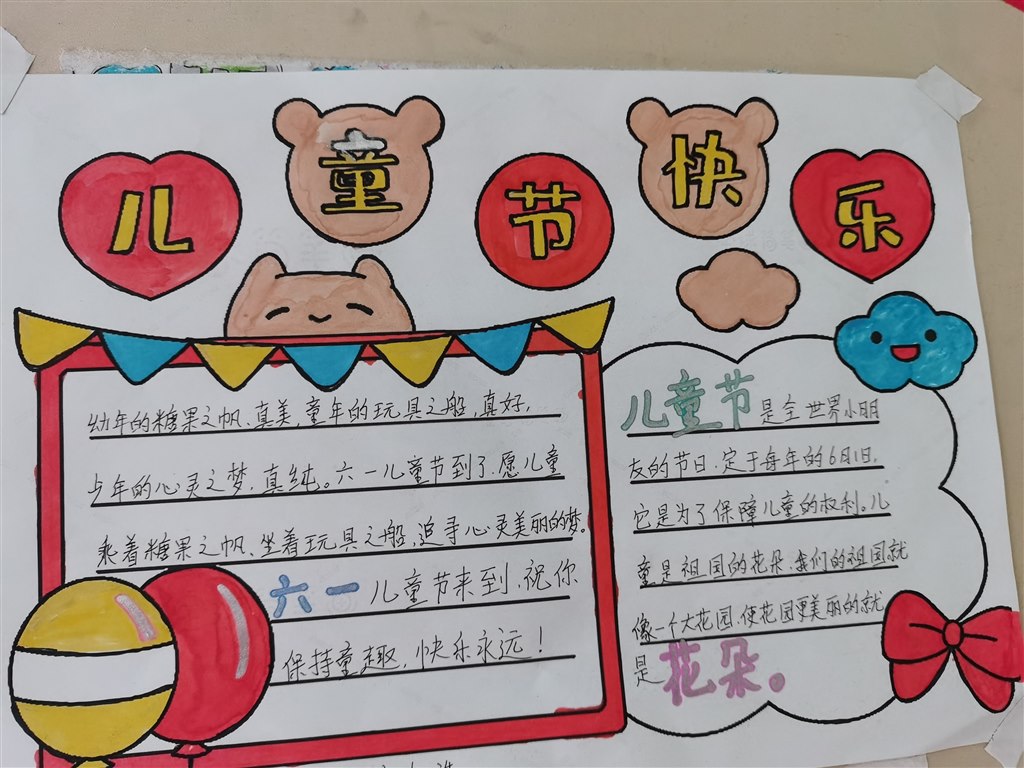 儿童节快乐
幼年的糖果之帆、真美,童年的玩具之船,真好,
少年的心灵之梦,真纯。六一儿童节到了,愿儿童
乘着糖果之帆、坐着玩具之船,追寻心灵美丽的梦。
六一儿童节来到,祝你
保持童趣,快乐永远!
儿童节是全世界小朋
友的节日,定于每年的6月1日,
它是为了保障儿童的权利。儿
童是祖国的花朵,我们的祖国就
像一个大花园,使花园更美丽的就
是花朵。